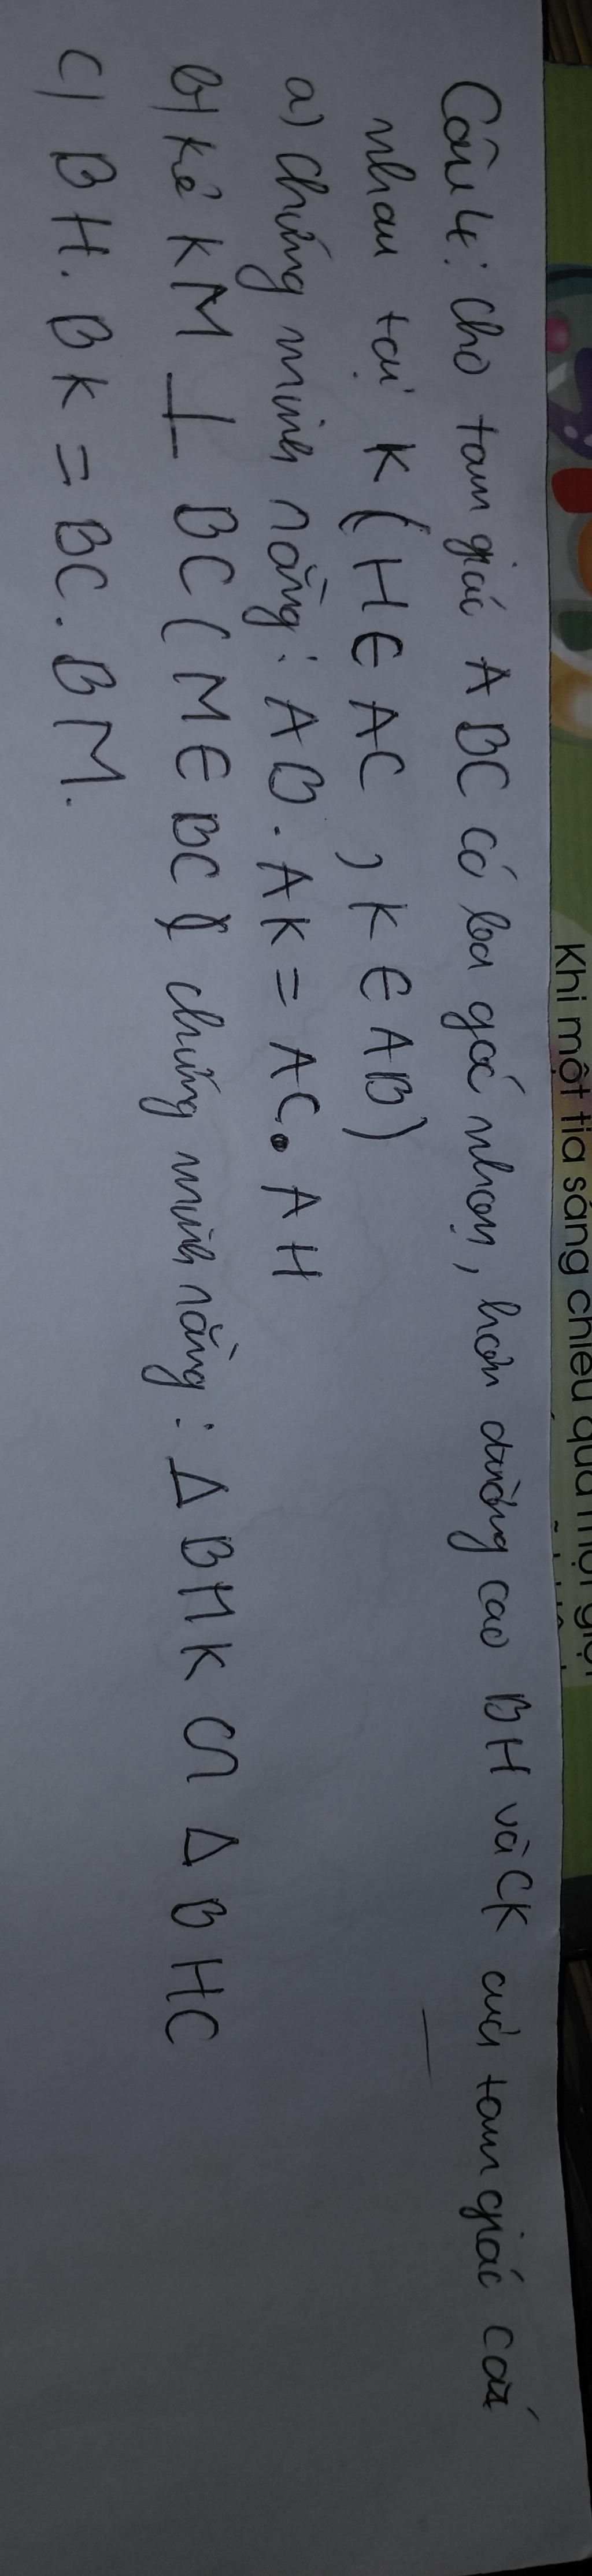 Câu 4: cho tam giác ABC có ba góc nhọn, hai đường cao BH và CK của tam giác cắt
nhau tại K (H ∈ AC, K ∈ AB)
a) chứng minh rằng: AB. AK = AC. AH
b) kẻ KM ⊥ BC (M ∈ BC) chứng minh rằng: Δ BMK ∽ Δ BHC
c) BH. BK = BC. BM.
Khi một tia sáng chiếu qua một